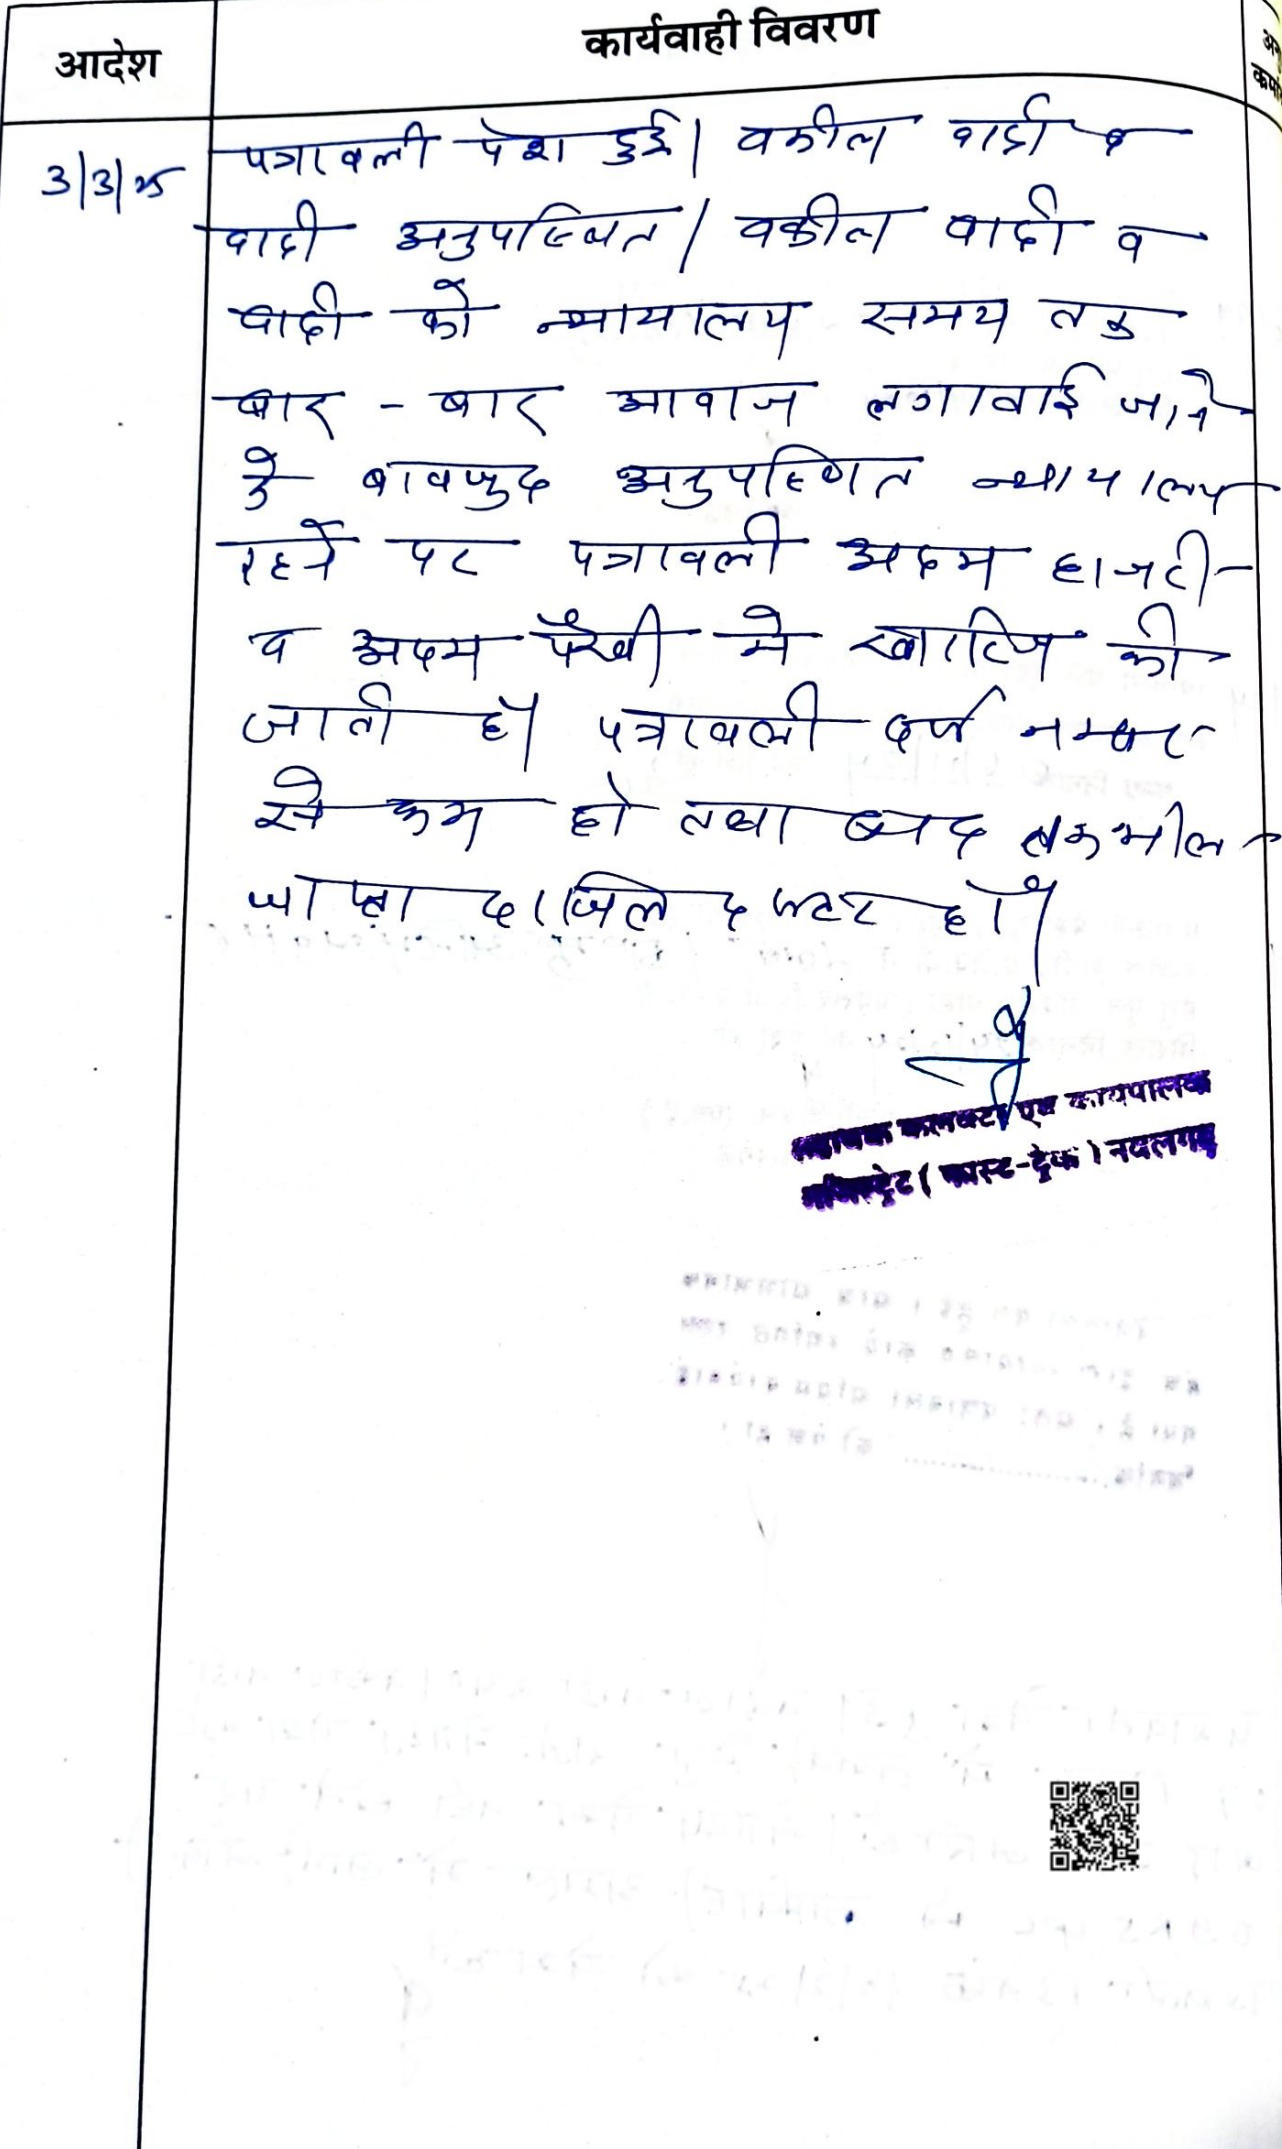 आदेश
कार्यवाही विवरण
3/3/25
पत्रावली पेश हुई। वकील वादी व
वादी अनुपस्थित। वकील वादी व
वादी को न्यायालय समय तक
बार - बार आवाज लगावाई जाने
के बावजुद अनुपस्थित न्यायालय
रहने पर पत्रावली अदम हाजरी
व अदम पैरवी मे खारिज की
जाती है। पत्रावली दर्ज नम्बर
से कम हो तथा बाद तकमील
जाप्ता दाखिल दफ्तर हो।
सहायक कलक्टर एवं कार्यपालक
मजिस्ट्रेट ( फास्ट-ट्रेक ) नवलगढ़